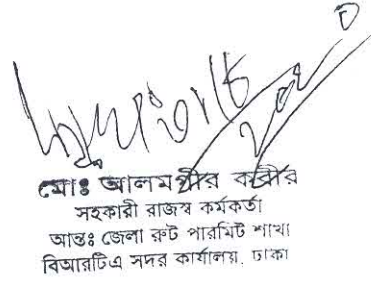 মোঃ আলমগীর কবীর
সহকারী রাজস্ব কর্মকর্তা
আন্তঃ জেলা রুট পারমিট শাখা
বিআরটিএ সদর কার্যালয়, ঢাকা